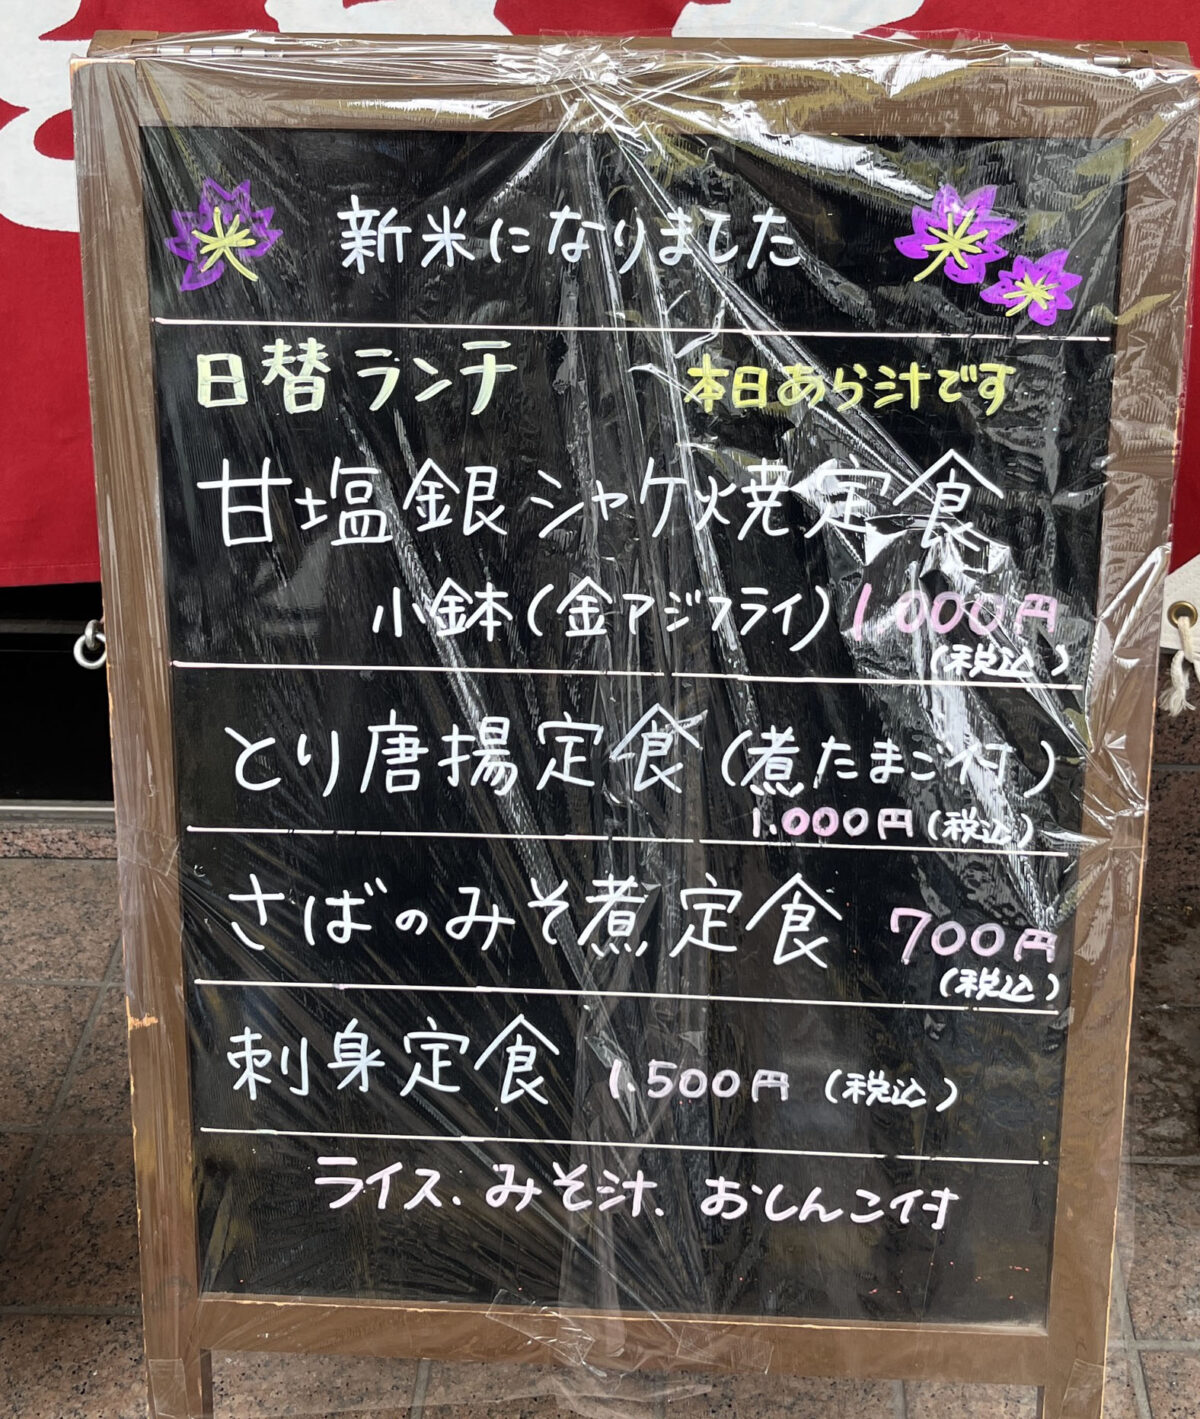 新米になりました
日替ランチ 本日あら汁です
甘塩銀シャケ焼定食
小鉢(金アジフライ) 1.000円
(税込)
とり唐揚定食(煮たまご付)
1.000円(税込)
さばのみそ煮定食 700円
(税込)
刺身定食 1.500円 (税込)
ライス.みそ汁.おしんこ付